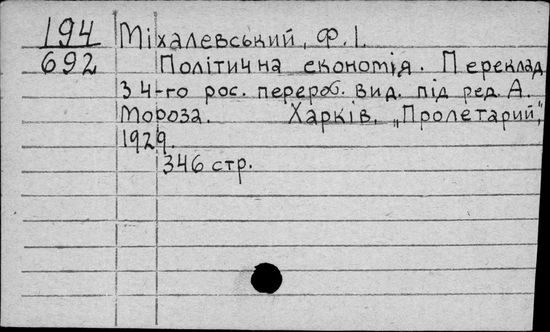 194 Міхалевський, Ф.І.
692 Політична економія. Переклад
з 4-го рос. перероб. вид. під ред. А.
Мороза. Харків, „Пролетарий",
1929.
346 стр.